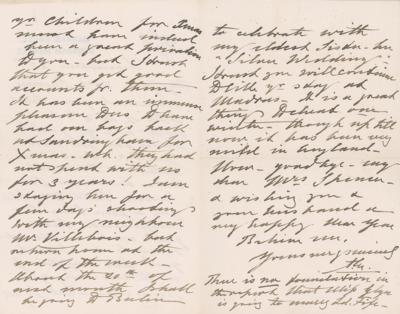 yr. Children for Xmas
must have indeed
been a great privation
to you - but I trust
that you get good
accounts fr. them -
It has been an immense
pleasure to us to have
had our boys back
at Sandringham for
Xmas - wh. they had
not spent with us
for 3 years! I am
staying here for a
few days shooting
with my neighbour
Mr. Villebois - but
return home at the
end of the week -
About the 20th of
next month I shall
be going to Berlin
to celebrate with
my eldest sister her
"Silver Wedding" -
I trust you will continue
to like yr. stay at
Madras. It is a great
thing to cheat one
winter - though up till
now it has been very
mild in England.
Now - good-bye - my
dear Mrs. Spencer -
& wishing you &
your husband a
very happy New Year
Believe me,
Yours very sincerely
There is no foundation in
the report that Miss
is going to marry Ld.